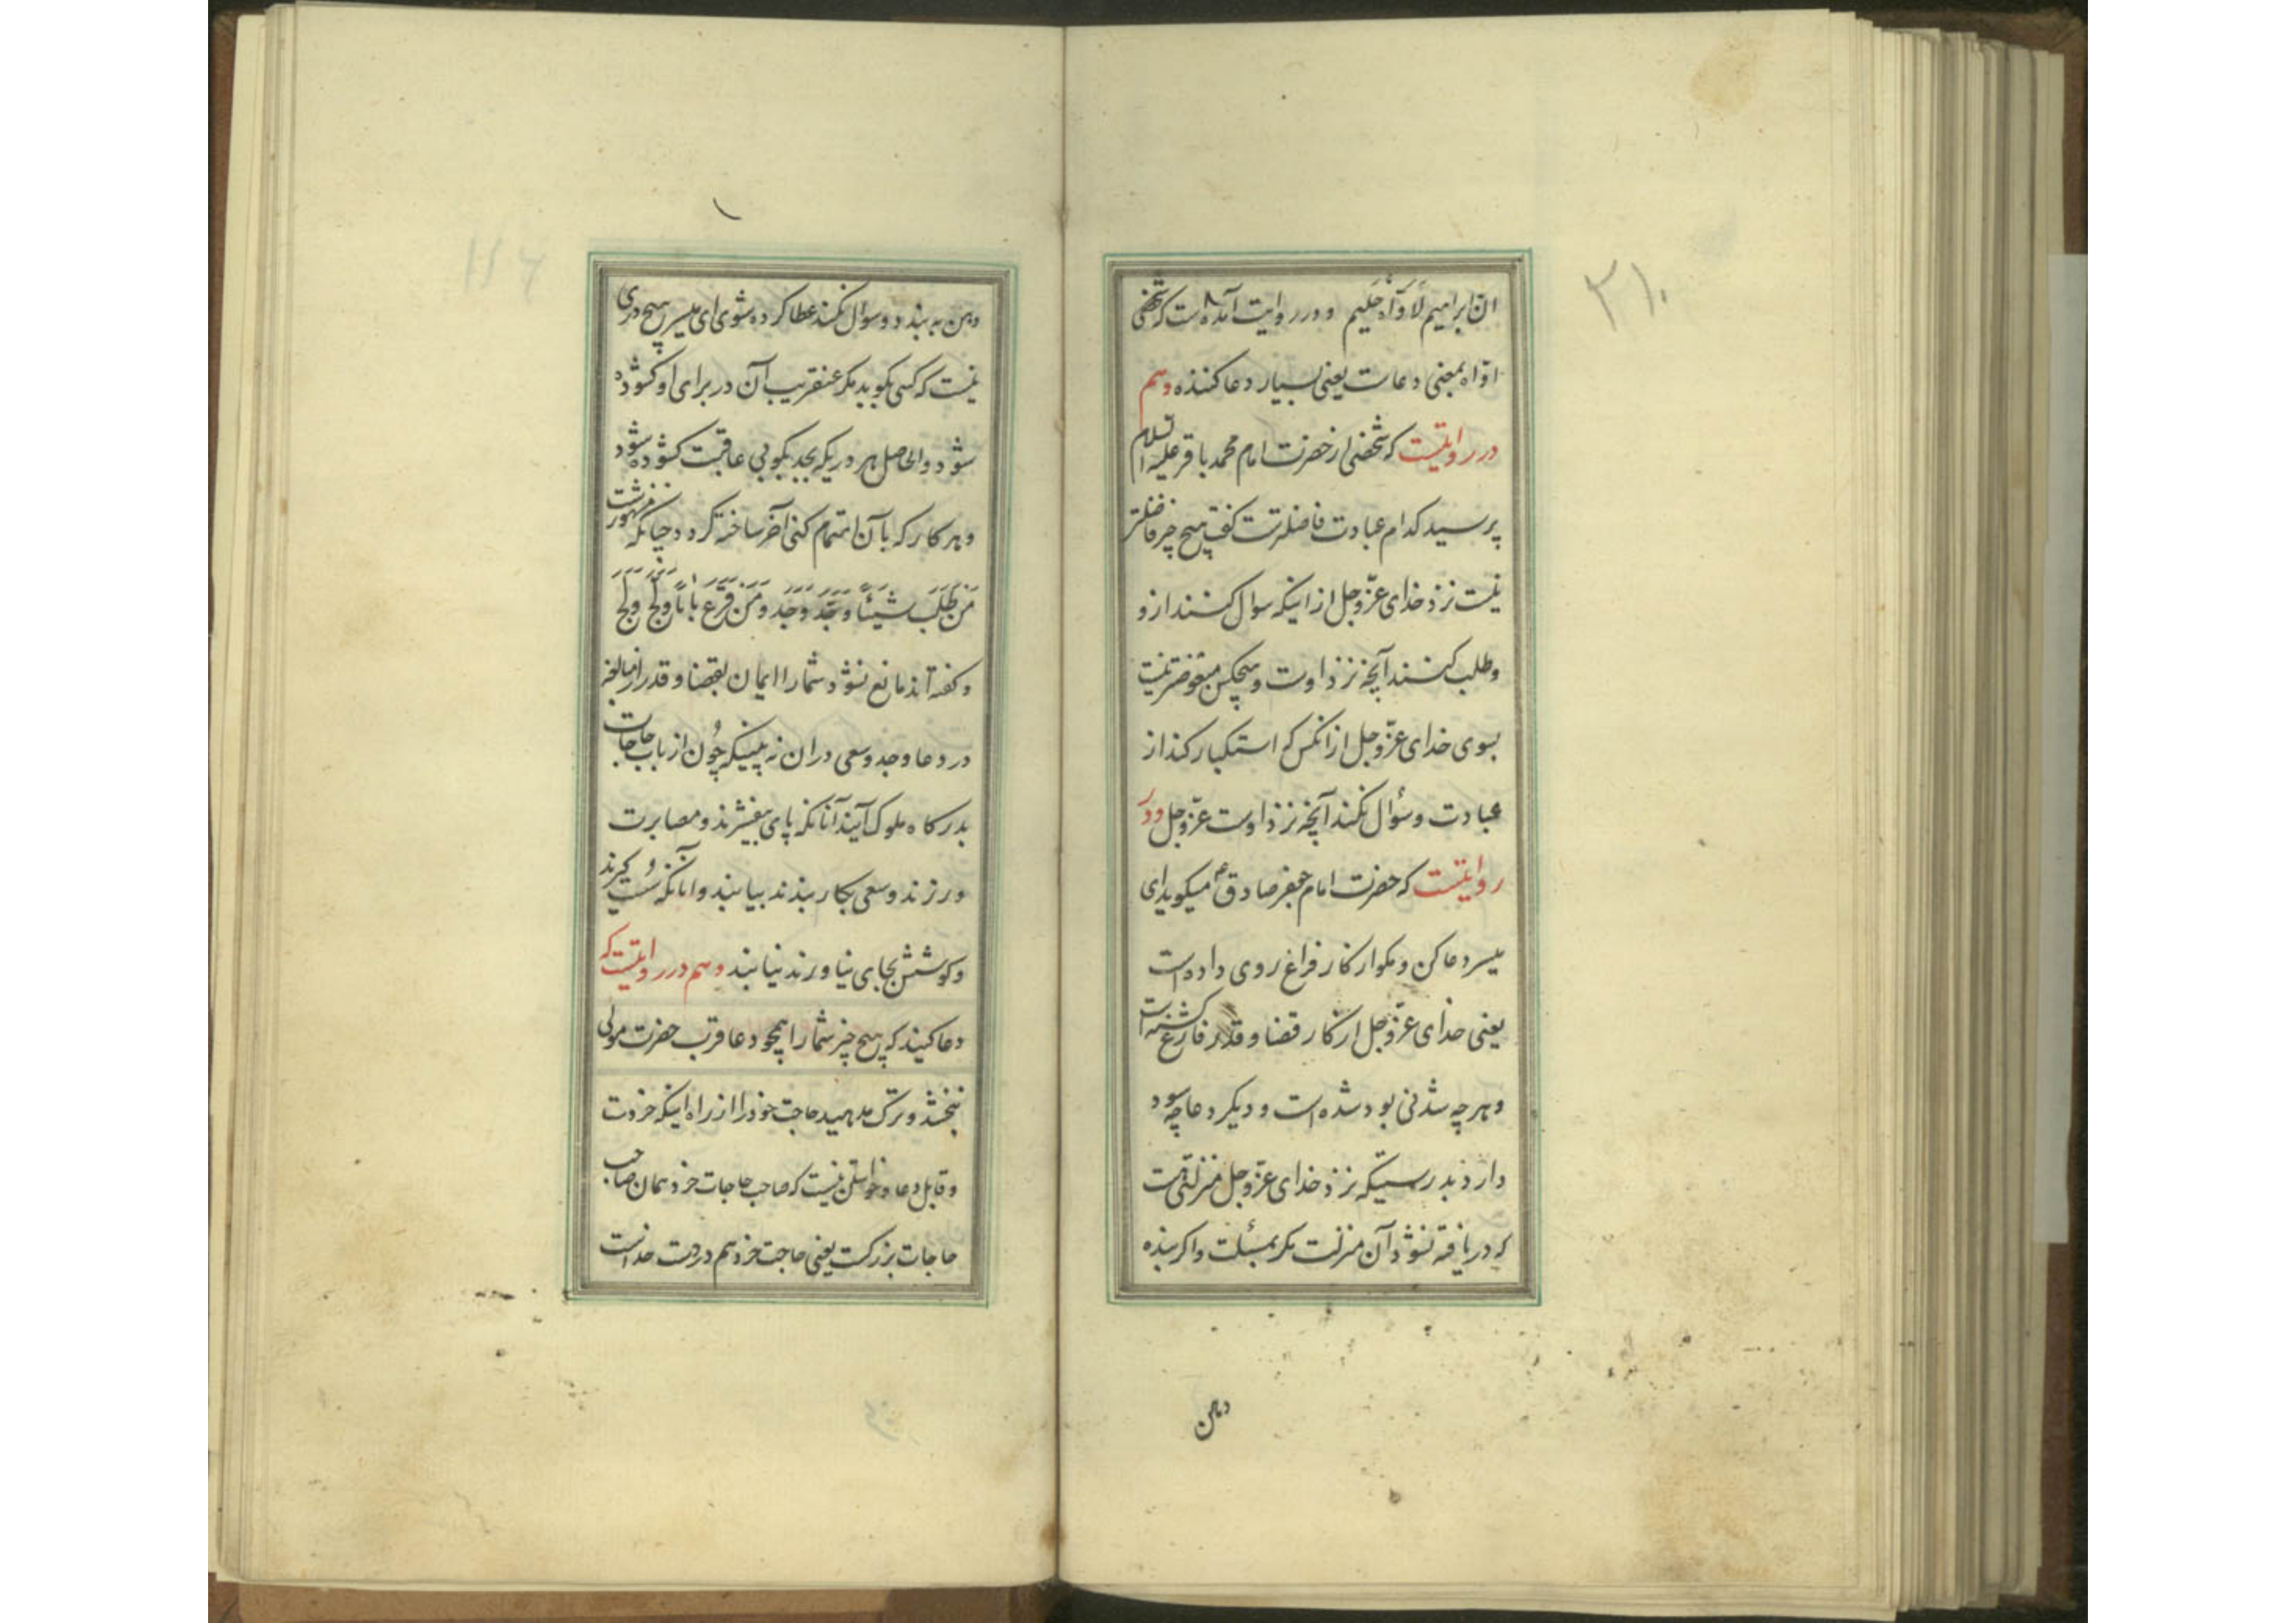 ۲۱۰
ان ابراهیم لَاَوّاهٌ حَلیم و در روایت آمده است که شخصی
اوّاه بمعنی دعاست یعنی بسیار دعا کننده وهم
در روایتست که شخصی از حضرت امام محمد باقر علیه السلام
پرسید کدام عبادت فاضلترست گفت هیچ چیز فاضلتر
نیست نزد خدای عزّ و جل از اینکه سوال کنند ازو
و طلب کنند آنچه نزد اوست و هیچکس مبغوضتر نیست
بسوی خدای عزّ و جل از آنکس که استکبار کند از
عبادت و سؤال نکند آنچه نزد اوست عزّ و جل و در
روایتست که حضرت امام جعفر صادق ع میکوید ای
میسر دعا کن و مکو از کار فراغ روی داده است
یعنی خدای عزّ و جل از کار قضا و قدر فارغ کشته است
و هر چه شدنی بود شده است و دیکر دعا چه سود
دارد بدرستیکه نزد خدای عزّ و جل منزلتی هست
که دریافته نشود آن منزلت مکر بمسئلت و اکر بنده
دهن
دهن به بندد و سؤال نکند عطا کرده شوی ای میسر هیچ دری
نیست که کسی بکوبد مکر عنقریب آن در برای او کشوده
شود و الحاصل هر دریکه بجد بکوبی عاقبت کشوده شود
و هر کار که بآن اهتمام کنی آخر ساخته کردد چنانکه مشهورست
مَن طَلَبَ شَیئًا وَجَدَّ وَجَدَ وَمَن قَرَعَ بابًا وَلَجَّ وَلَجَ
و کفته اند مانع نشود شما را ایمان بقضا و قدر از مبالغه
در دعا و جد و سعی در ان نه بینیکه چون ارباب حاجات
بدرکاه ملوک آیند آنانکه پای بیفشرند و مصابرت
ورزند و سعی بکار بندند بیابند و انانکه سُست کیرند
و کوشش بجای نیاورند نیابند وهم در روایتست که
دعا کنید که هیچ چیز شما را همچو دعا قرب حضرت مولی
نبخشد و ترک مدهید حاجت خود را از راه اینکه خردست
و قابل دعا و خواستن نیست که صاحب حاجات خرد همان صاحب
حاجات بزرکست یعنی حاجت خرد هم در دست خداست